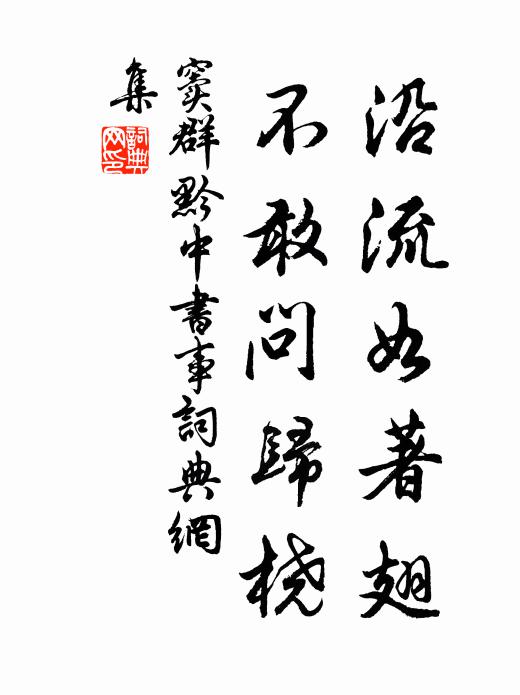 沿流如著翅
不敢問歸橈
竇群黔中書事詞典網
集
詞典網印